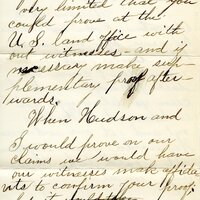 very limited that you
could prove at the
U. S. land office with
out witnesses - and if
necessary make sup-
plementary proof after-
wards.
When Hudson and
I would prove on our
claims we would have
our witnesses make affida-
vits to confirm your proof;